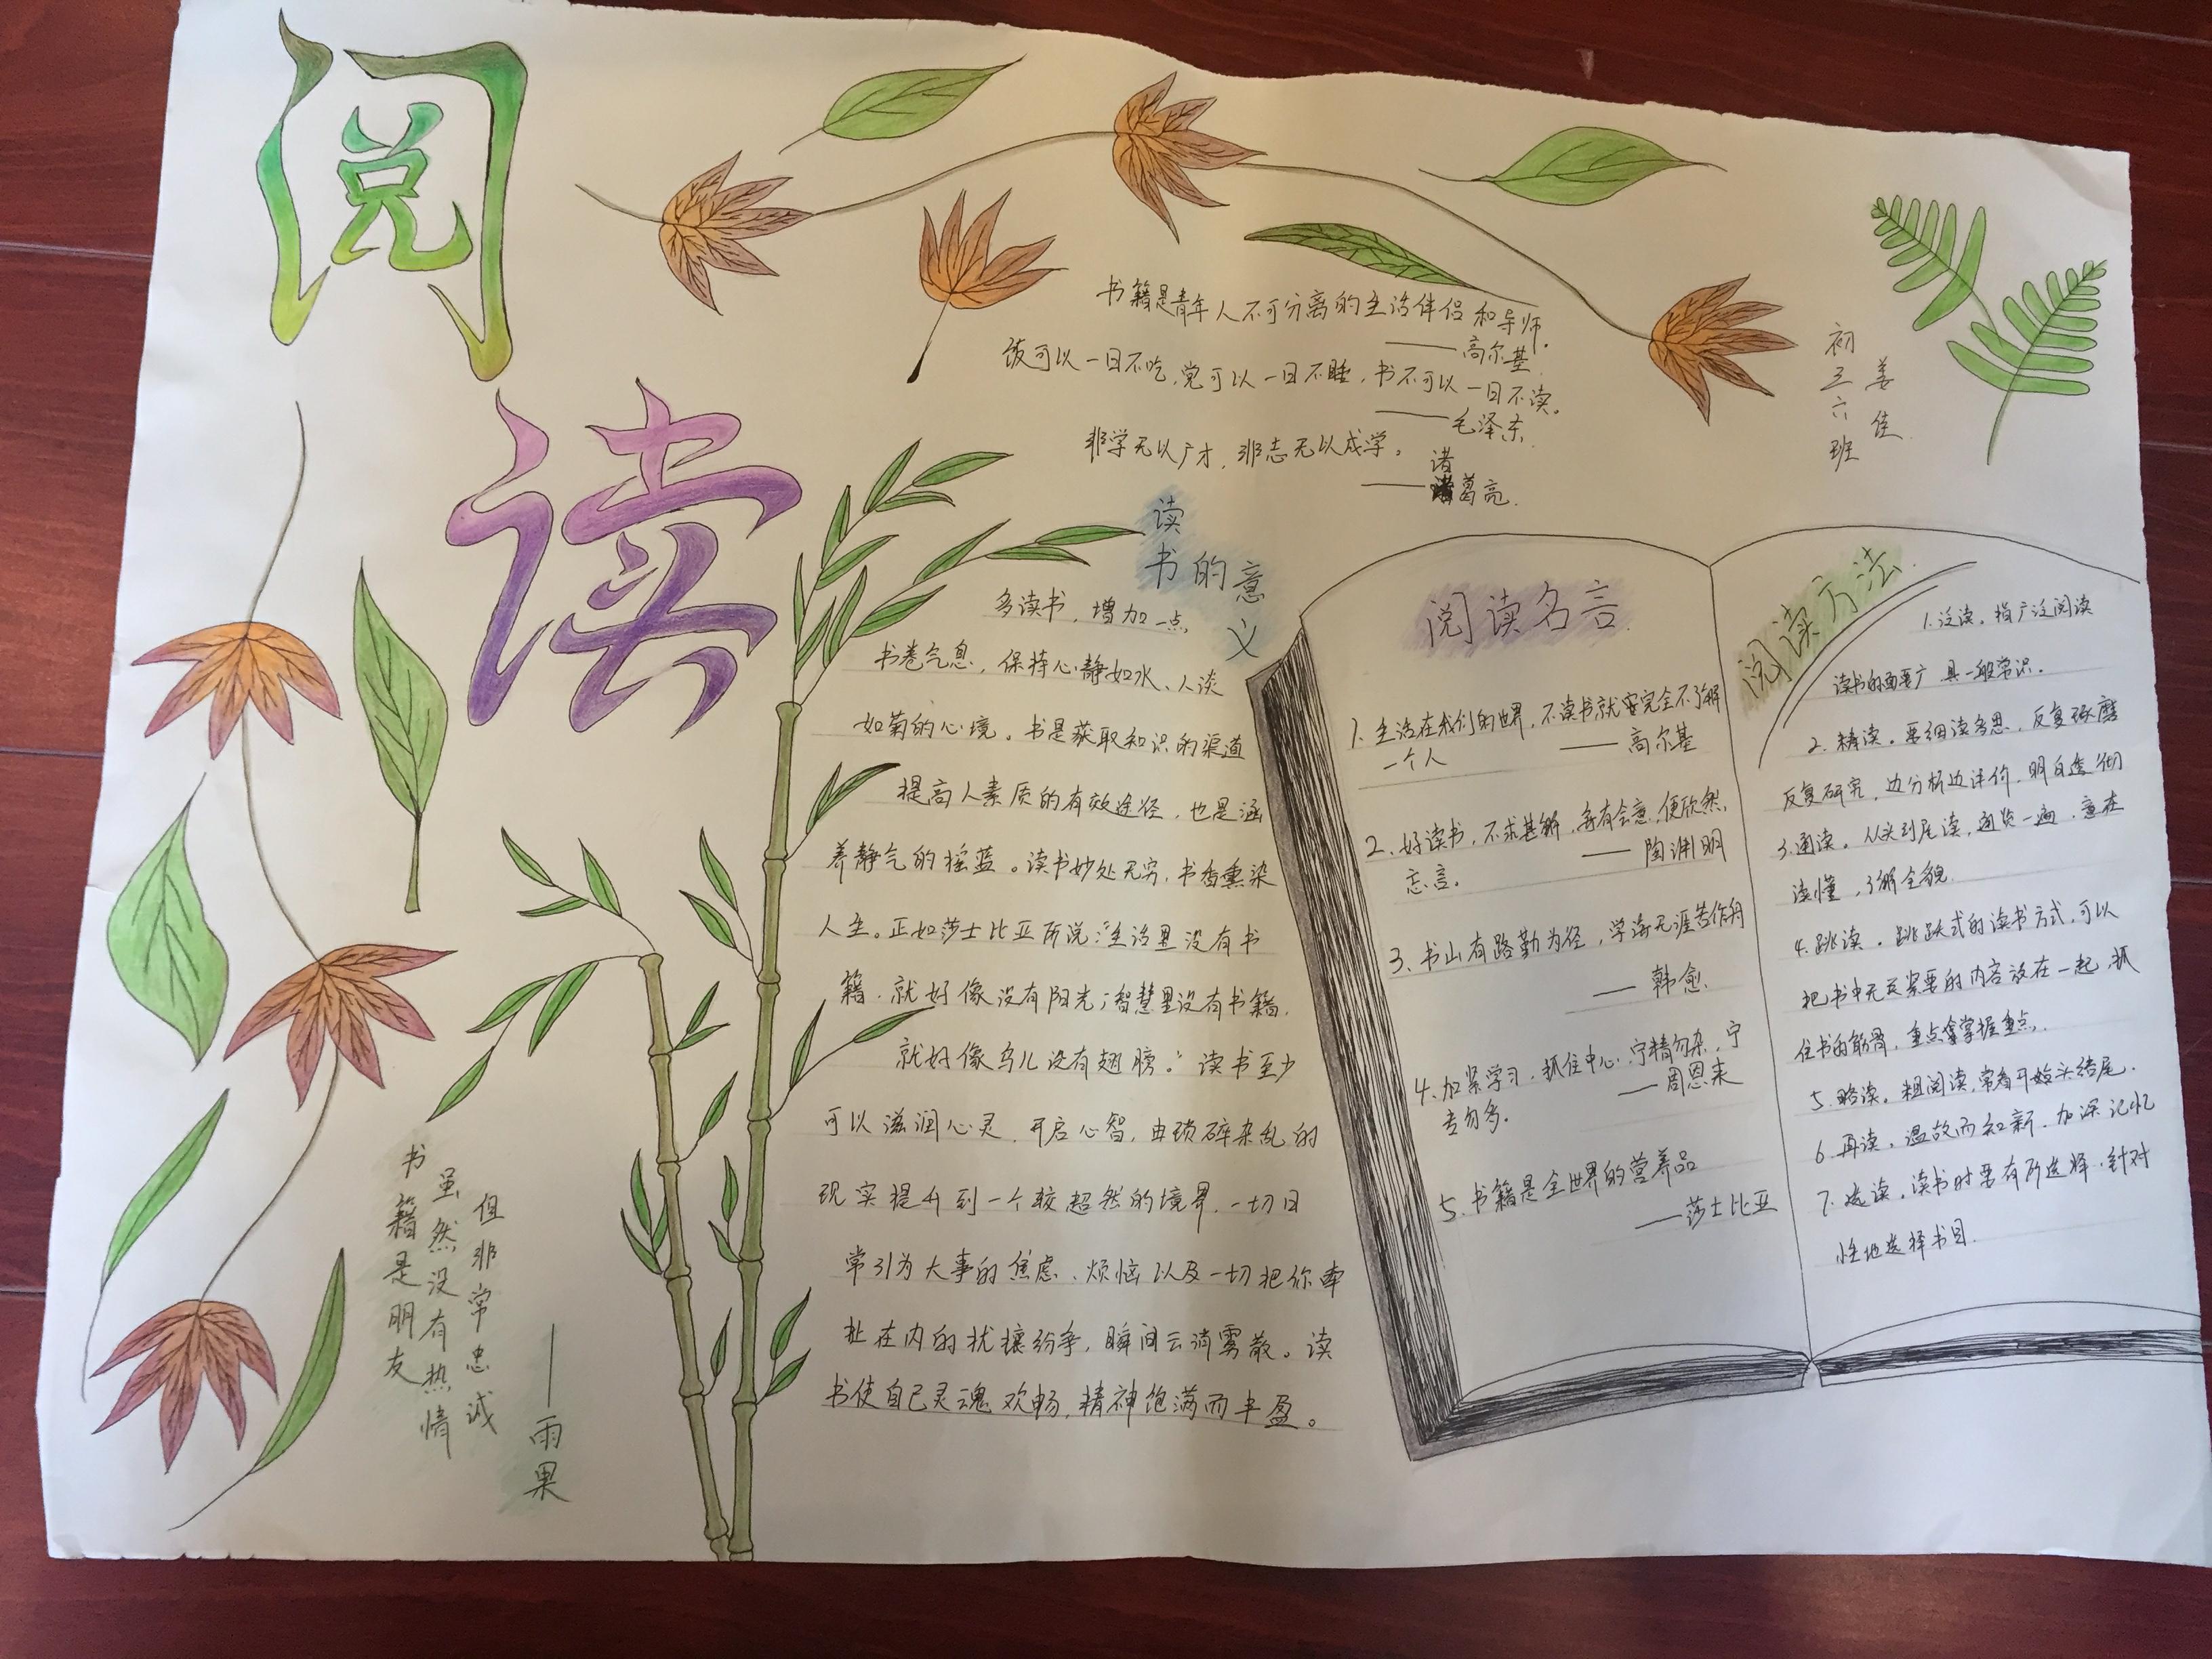 阅
读
书籍是青年人不可分离的生活伴侣和导师。
——高尔基
饭可以一日不吃,觉可以一日不睡,书不可以一日不读。
——毛泽东
非学无以广才,非志无以成学。
——诸葛亮
初三六班
姜佳
读书的意义
多读书,增加一点,
书卷气息,保持心静如水、人淡
如菊的心境。书是获取知识的渠道
提高人素质的有效途径,也是涵
养静气的摇蓝。读书妙处无穷,书香熏染
人生。正如莎士比亚所说:“生活里没有书
籍,就好像没有阳光;智慧里没有书籍,
就好像鸟儿没有翅膀。”读书至少
可以滋润心灵,开启心智,由琐碎杂乱的
现实提升到一个较超然的境界,一切日
常引为大事的焦虑、烦恼以及一切把你牵
扯在内的扰攘纷争,瞬间云消雾散。读
书使自己灵魂欢畅,精神饱满而丰盈。
书籍是朋友
虽然没有热情
但非常忠诚
——雨果
阅读名言
1、生活在我们的世界,不读书就完全不了解
一个人
——高尔基
2、好读书,不求甚解,每有会意,便欣然,
忘言。
——陶渊明
3、书山有路勤为径,学海无涯苦作舟
——韩愈
4、加紧学习,抓住中心,宁精勿杂,宁
专勿多。
——周恩来
5、书籍是全世界的营养品
——莎士比亚
阅读方法
1、泛读。指广泛阅读
读书的面要广 具一般常识。
2、精读。要细读多思,反复琢磨
反复研究,边分析边评价,明白透彻
3、通读。从头到尾读,通览一遍,意在
读懂,了解全貌
4、跳读。跳跃式的读书方式,可以
把书中无关紧要的内容放在一起,抓
住书的筋骨,重点掌握重点。
5、略读。粗阅读,常看开始头结尾.
6、再读。温故而知新,加深记忆
7、选读。读书时要有所选择,针对
性地选择书目.